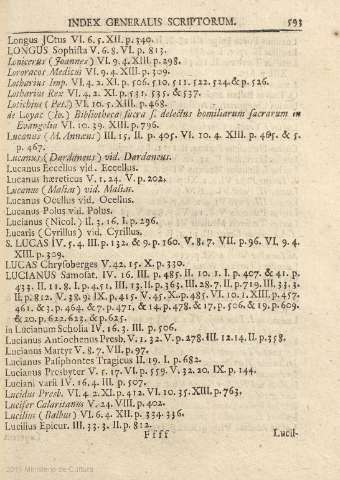 INDEX GENERALIS SCRIPTORUM. 593
Longus JCtus VI. 6. 5. XII. p. 340.
LONGUS Sophista V. 6. 8. VI. p. 813.
Lonicerus (Joannes) VI. 9. 4. XIII. p. 298.
Lororacos Medicus VI. 9. 4. XIII. p. 309.
Lotharius Imp. VI. 4. 2. XI. p. 506. 510. 511. 522. 524. & p. 526.
Lotharius Rex VI. 4. 2. XI. p. 531. 535. & 537.
Lotichius (Pet.) VI. 10. 5. XIII. p. 468.
de Loyac (Jo.) Bibliotheca sacra s. delectus homiliarum sacrarum in
Evangelia VI. 10. 39. XIII. p. 796.
Lucanus (M. Annæus) III. 15, II. p. 405. VI. 10. 4. XIII. p. 465. & 5.
p. 467.
Lucanus (Dardanus) vid. Dardanus.
Lucanus Eccellus vid. Eccellus.
Lucanus hæreticus V. 1. 24. V. p. 202.
Lucanus (Malias) vid. Malias.
Lucanus Ocellus vid. Ocellus.
Lucanus Polus vid. Polus.
Lucanus (Nicol.) II. 3. 16. I. p. 296.
Lucaris (Cyrillus) vid. Cyrillus.
S. LUCAS IV. 5. 4. III. p. 132. & 9. p. 160. V. 8. 7. VII. p. 96. VI. 9. 4.
XIII. p. 309.
LUCAS Chrysoberges V. 42. 15. X. p. 330.
LUCIANUS Samosat. IV. 16. III. p. 485. II. 10. 1. I. p. 407. & 41. p.
433. II. 11. 8. I. p. 451. III. 13. II. p. 363. III. 28. 7. II. p. 719. III. 33. 3.
II. p. 812. V. 38. 9. IX. p. 415. V. 45. X. p. 485. VI. 10. 1. XIII. p. 457.
461. & 3. p. 464. & 7. p. 471. & 14. p. 478. & 17. p. 506. & 19. p. 609.
& 20. p. 622. 623. & p. 625.
in Lucianum Scholia IV. 16. 3. III. p. 506.
Lucianus Antiochenus Presb. V. 1. 32. V. p. 278. III. 12. 14. II. p. 358.
Lucianus Martyr V. 8. 7. VII. p. 97.
Lucianus Pasiphontes Tragicus II. 19. I. p. 682.
Lucianus Presbyter V. 1. 17. VI. p. 559. V. 32. 20. IX. p. 144.
Luciani varii IV. 16. 4. III. p. 507.
Lucidus Presb. VI. 4. 2. XI. p. 412. VI. 10. 35. XIII. p. 763.
Lucifer Calaritanus V. 24. VIII. p. 402.
Lucilius (Balbus) VI. 6. 4. XII. p. 334. 336.
Lucilius Epicur. III. 33. 3. II. p. 812.
Ffff Lucil-
2015 Ministerio de Cultura